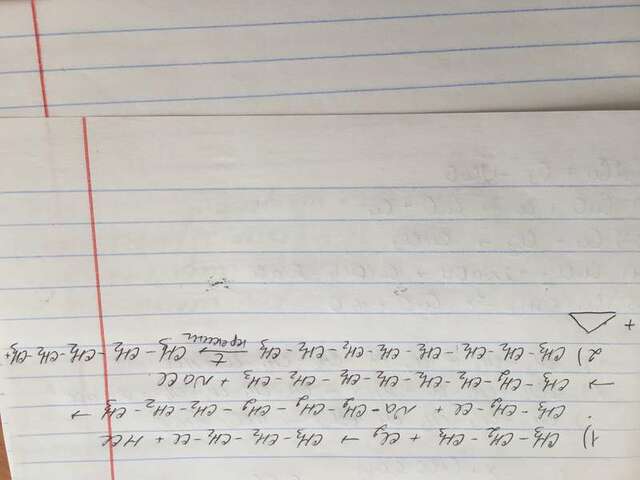 1) CH₃-CH₂-CH₃ + Cl₂ → CH₃-CH₂-CH₂-Cl + HCl
CH₃-CH₂-Cl + Na-CH₂-CH₂-CH₂-CH₂-CH₂-CH₃ →
→ CH₃-CH₂-CH₂-CH₂-CH₂-CH₂-CH₂-CH₃ + NaCl.
2) CH₃-CH₂-CH₂-CH₂-CH₂-CH₂-CH₂-CH₃ t→ крекинг CH₃-CH₂-CH₂-CH₂-CH₃ +
+